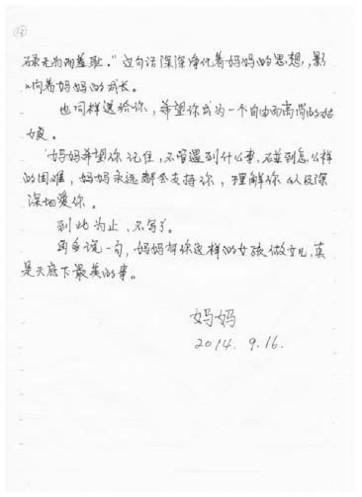 碌无为而羞耻。”这句话深深净化着妈妈的思想，影
响着妈妈的成长。
也同样送给你，希望你成为一个自由而高尚的姑
娘。
妈妈希望你记住，不管遇到什么事，碰到怎么样
的困难，妈妈永远都会支持你，理解你以及深
深地爱你。
到此为止，不写了。
再多说一句，妈妈有你这样的女孩做女儿，真
是天底下最美的事。
妈妈
2014. 9.16.